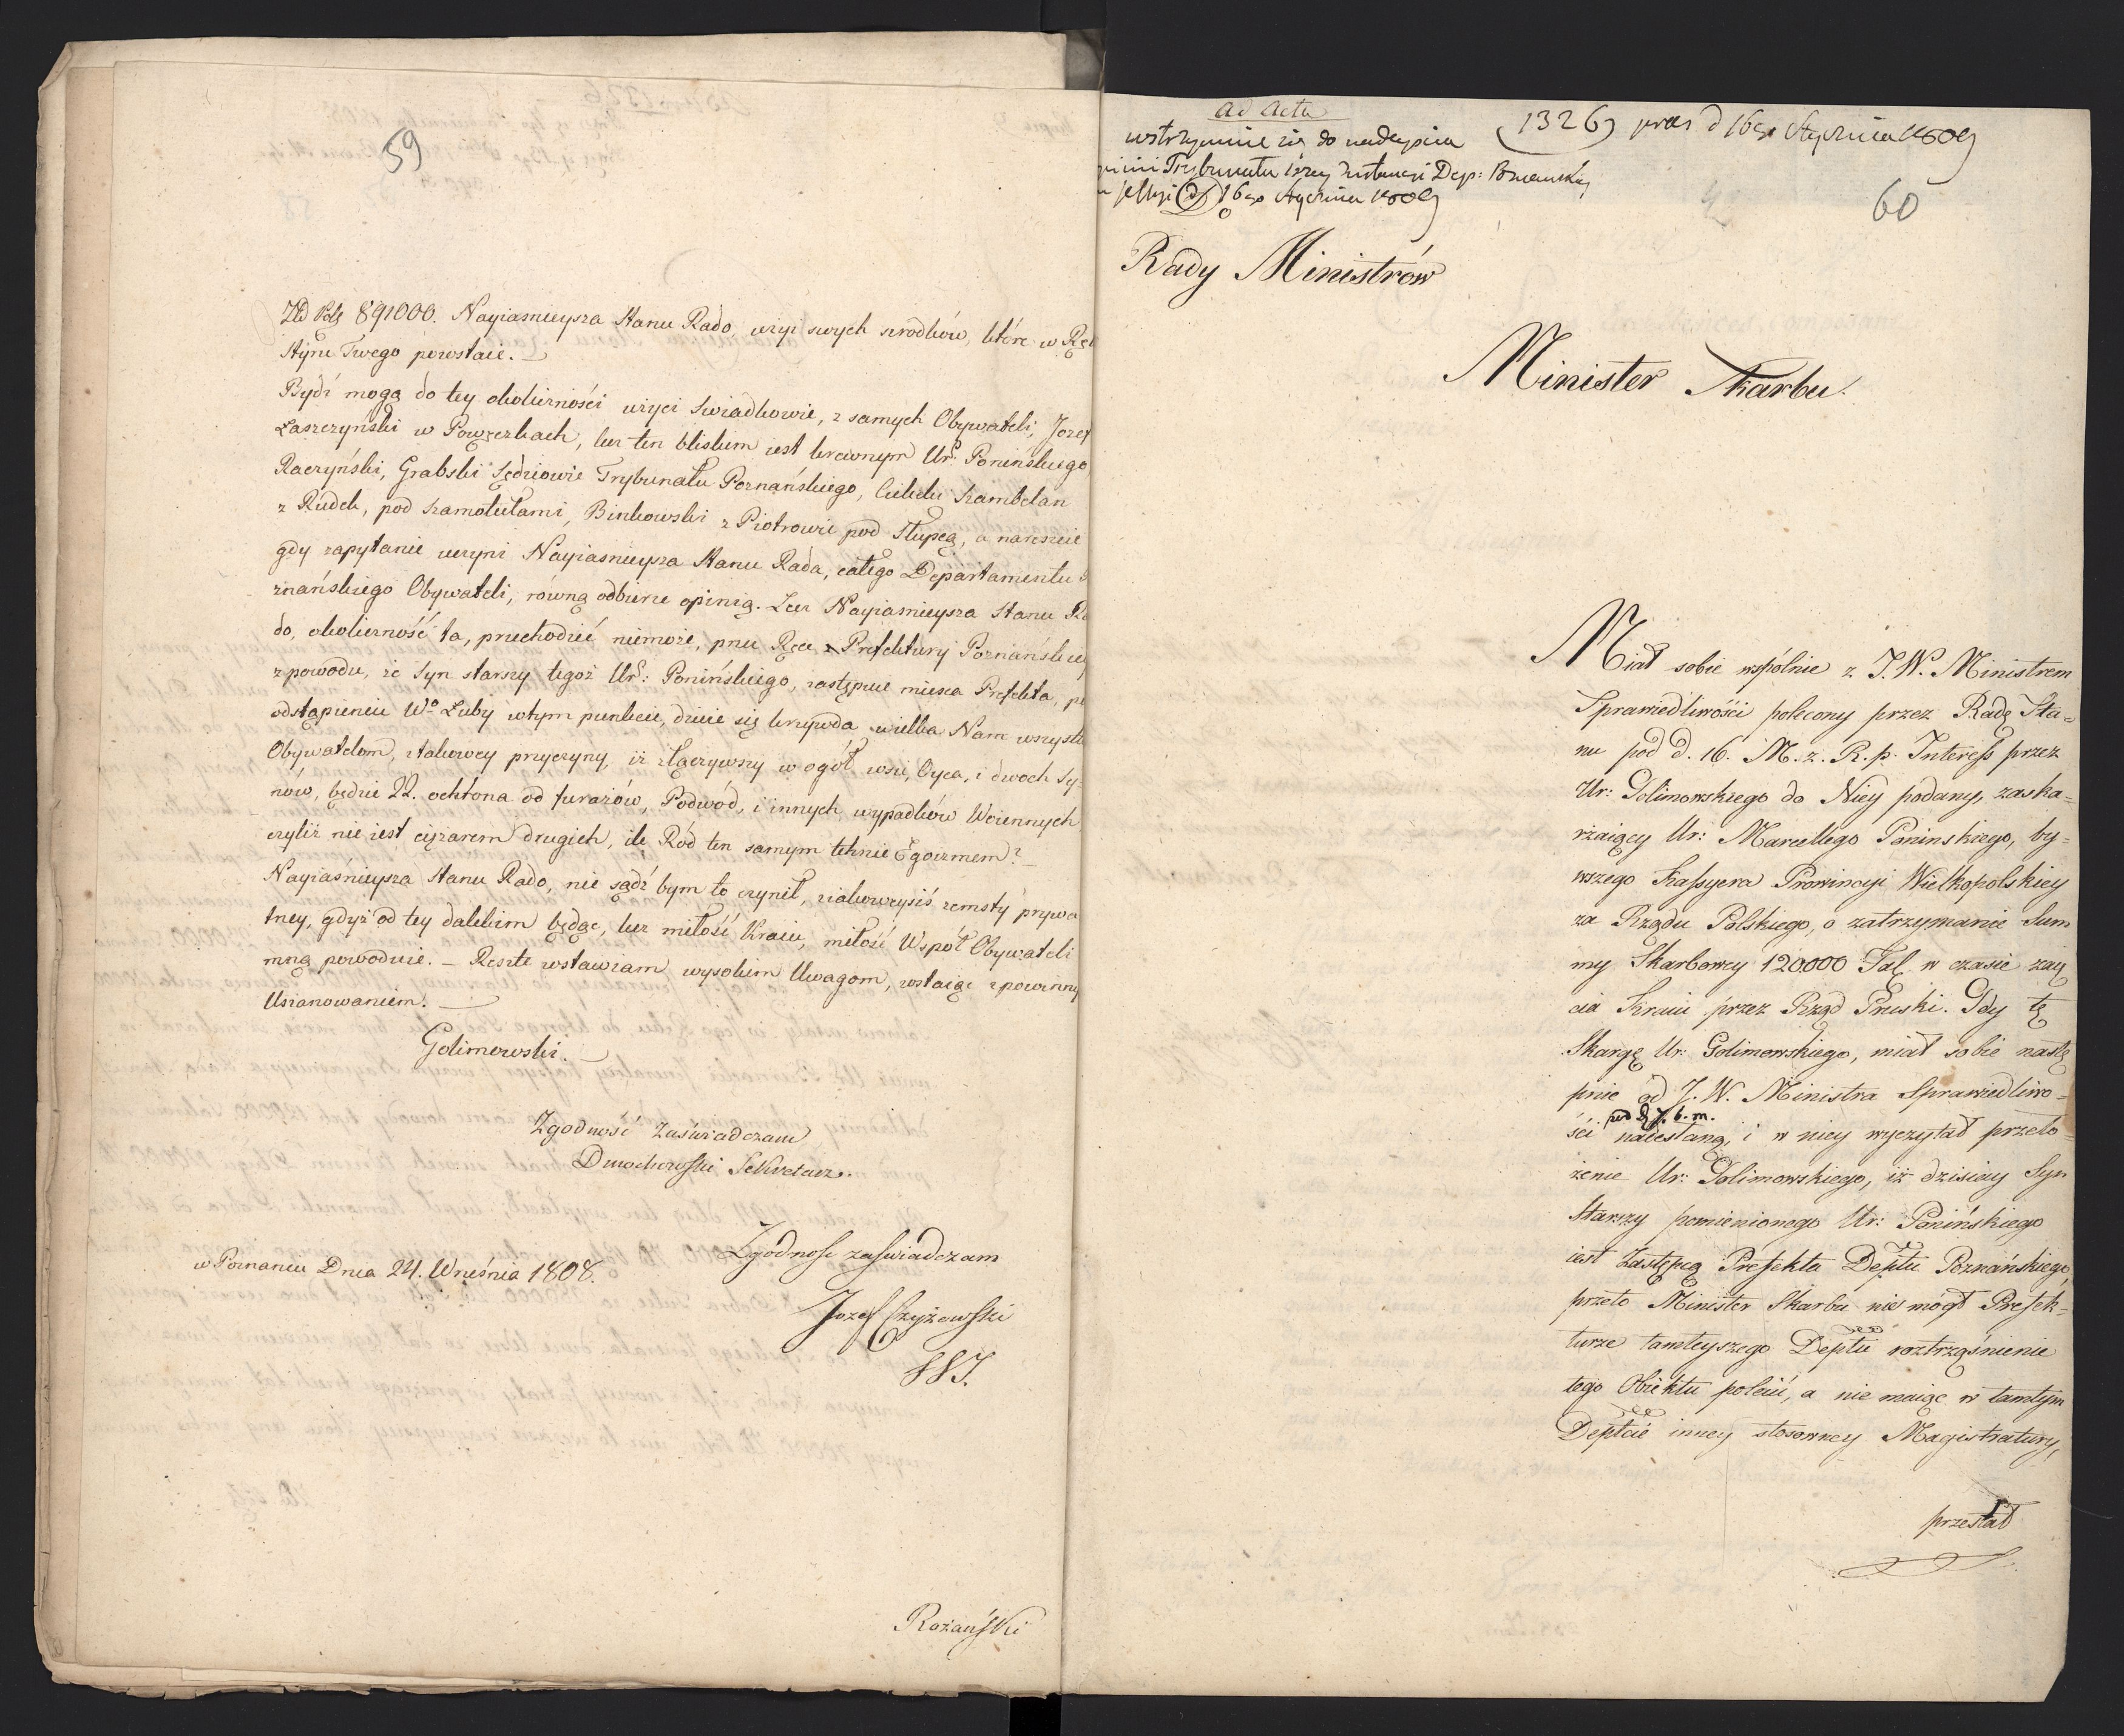 59
Zł Pols 891000. Nayiasnieysza Stanu Rado, użyi swych srodków, które w Rę
Stÿrie Twego powstaie.
Bydź mogą do tey okoliczności użyci Swiadkowie, z samych Obywateli, Jozef
Łaszczyński w Powęzkach, lecz ten bliskim iest krewnym Ur: Ponińskiego
Raczyński, Grabski Sędziowie Trybunału Poznańskiego, Szambelan
z Rudek, pod Szamotułami, Binkowski z Piotrowic pod Słupcą, a nareszcie
gdy zapytanie uczyni Nayiasnieysza Stanu Rada, całego Departamentu
znańskiego Obywateli, równą odbierze opinią. Lecz Nayiasnieysza Stanu Ra
do, okoliczność ta, przechodzić niemoże, przez Ręce Prefektury Poznańskiey
zpowodu, że Syn starszy tegoż Ur: Ponińskiego, zastępuie mieysca Prefekta, po
odstąpieniu Wo Luby wtym punkcie, dzieie się krzywda wielka Nam wszystk
Obywatelom, stakowey przyczyny, iż złączywszy w ogół wsie, Oyca, i dwóch Sy-
nów, będzie 22. ochłona od furażów, Podwód, i innych wypadków Woiennych
czyliż nie iest ciężarem drugich, ile Ród ten samym tchnie Egoizmem?
Nayiaśnieysza Stanu Rado, nie sądź bym to czynił, ziakowcysiś zemsty prywa
tney, gdyż od tey dalekim będąc, lecz miłość Kraiu, miłość Wspól Obywateli
mną powoduie. – Resztę wstawiam wysokim Uwagom, zostaiąc zpowinny
Uszanowaniem.
Golimowski.
Zgodność zaświadczam
Dmochowski Sekretarz.
Zgodnosc zaswiadczam
w Poznaniu Dnia 24. Września 1808.
Jozef Czyżewski
SSJ.
Rożański
ad acta
1326 praes d 16go Stycznia 1809
wstrzymuie się do nadeyścia
Trybunału 1szey Instancji Dep: Poznański
16go Stycznia 1809
60
Rady Ministrów
Minister Skarbu.
Miał sobie wspólnie z J.W. Ministrem
Sprawiedliwości polecony przez Radę Sta=
nu pod d. 16. M. z. R. p. Interess przez
Ur: Golimowskiego do Niey podany, zaska=
rżaiący Ur: Marcellego Poninskiego, by=
wszego Kassyera Prowincyi Wielkopolskiey
za Rządu Polskiego, o zatrzymanie Sum
my Skarbowey 120000 Tal. w czasie zaię
cia Kraiu przez Rząd Pruski. Gdy tę
Skargę Ur: Golimowskiego, miał sobie nastę
pnie od J.W. Ministra Sprawiedliwo=
pod d. 7. b. m.
ści nadesłaną, i w niey wyczytał przeło
żenie Ur: Golimowskiego, iż dzisiay Syn
Starszy pomienionego Ur: Ponińskiego
iest Zastępcą Prefekta Deptu Poznańskiego,
przeto Minister Skarbu nie mógł Prefek=
turze tamteyszego Deptu roztrząśnienie
tego Obiektu polecić, a nie maiąc w tamtym
Deptcie inney stosowney Magistratury,
przesłał